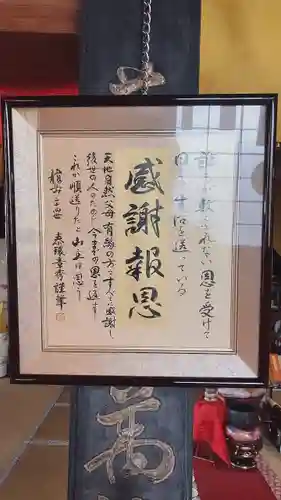 誰もが数えきれない恩を受けて
日々生活を送っている
感謝報恩
天地自然、父母、有縁の方々すべてに感謝し
後世の人のために今までの恩を返す
これが順送りだと山主は思う
泰環章秀謹筆
萬